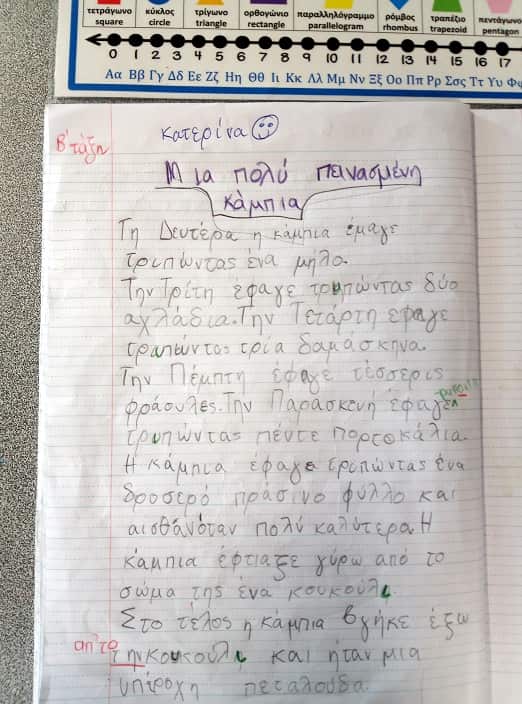 τετράγωνο κύκλος τρίγωνο ορθογώνιο παραλληλόγραμμο ρόμβος τραπέζιο πεντάγωνο
square circle triangle rectangle parallelogram rhombus trapezoid pentagon
0 1 2 3 4 5 6 7 8 9 10 11 12 13 14 15 16 17
Αα Ββ Γγ Δδ Εε Ζζ Ηη Θθ Ιι Κκ Λλ Μμ Νν Ξξ Οο Ππ Ρρ Σσς Ττ Υυ
Β' τάξη
κατερίνα
Μια πολύ πεινασμένη
κάμπια
Τη Δευτέρα η κάμπια έμαγε
τρυπώντας ένα μήλο.
Την Τρίτη έφαγε τρυπώντας δύο
αχλάδια. Την Τετάρτη έφαγε
τρυπώντας τρία δαμάσκηνα.
Την Πέμπτη έφαγε τέσσερις
φράουλες. Την Παρασκευή έφαγε
τρυπώντας πέντε πορτοκάλια.
Η κάμπια έφαγε τρυπώντας ένα
δροσερό πράσινο φύλλο και
αισθάνόταν πολύ καλύτερα. Η
κάμπια έφτιαξε γύρω από το
σώμα της ένα κουκούλι.
Στο τέλος η κάμπια βγήκε έξω
απ' το
την κουκούλι και ήταν μια
υπέροχη πεταλούδα.